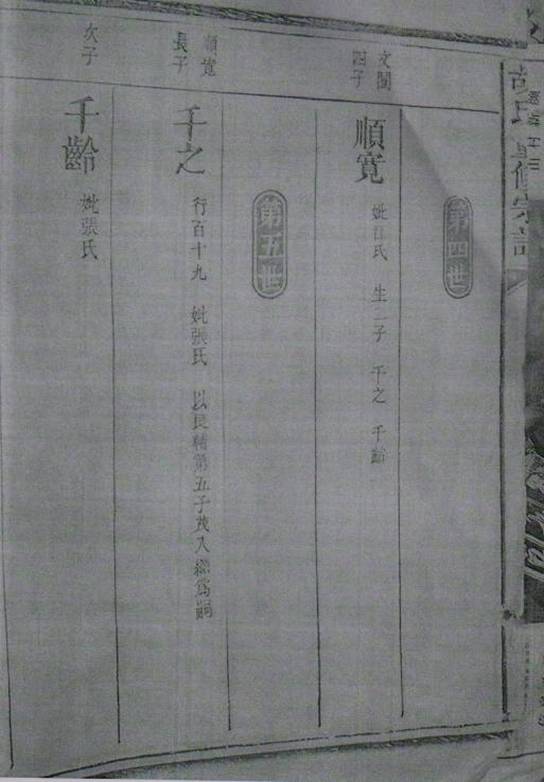 第四世
文閣四子
順寛
妣江氏 生二子 千之 千齡
第五世
順寛長子
千之
行百十九 妣張氏 以良輔第五子茂入繼爲嗣
次子
千齡
妣張氏